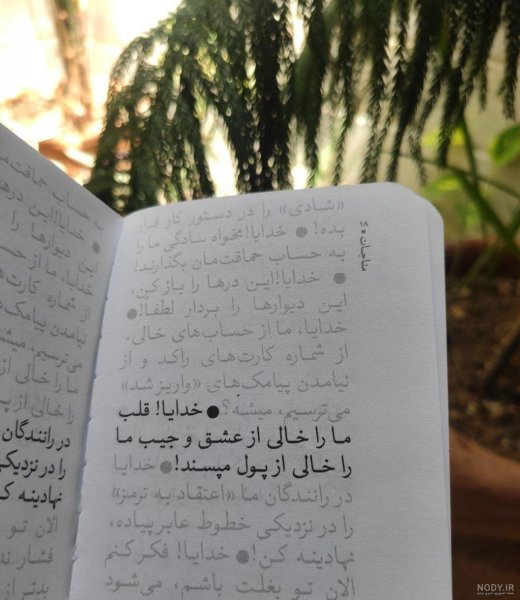 «شادی» را در دستور کار قرار
بده! ● خدایا!مخواه سادگی ما را
به حساب حماقت‌مان بگذارند!
● خدایا!این درها را باز کن،
این دیوارها را بردار لطفاً!●
خدایا، ما از حساب‌های خالی،
از شماره کارت‌های راکد و از
نیامدن پیامک‌های «واریز شد»
می‌ترسیم، میشه؟● خدایا! قلب
ما را خالی از عشق و جیب ما
را خالی از پول مپسند!● خدایا
در رانندگان ما «اعتقاد به ترمز»
را در نزدیکی خطوط عابرپیاده،
نهادینه کن!● خدایا! فکر کنم
الان تو بغلت باشم، می‌شود
مناجات ●
حساب حماقت‌ما
● خدایا!این درها
این دیوارها را
خدایا، ما از حسا
از شماره کارت‌ها
نیامدن پیامک‌ها
می‌ترسیم، میشه
ما را خالی از
را خالی از پو
در رانندگان
را در نزدیکی
نهادینه ک
الان تو
فشار
بدتر از
NODY.IR